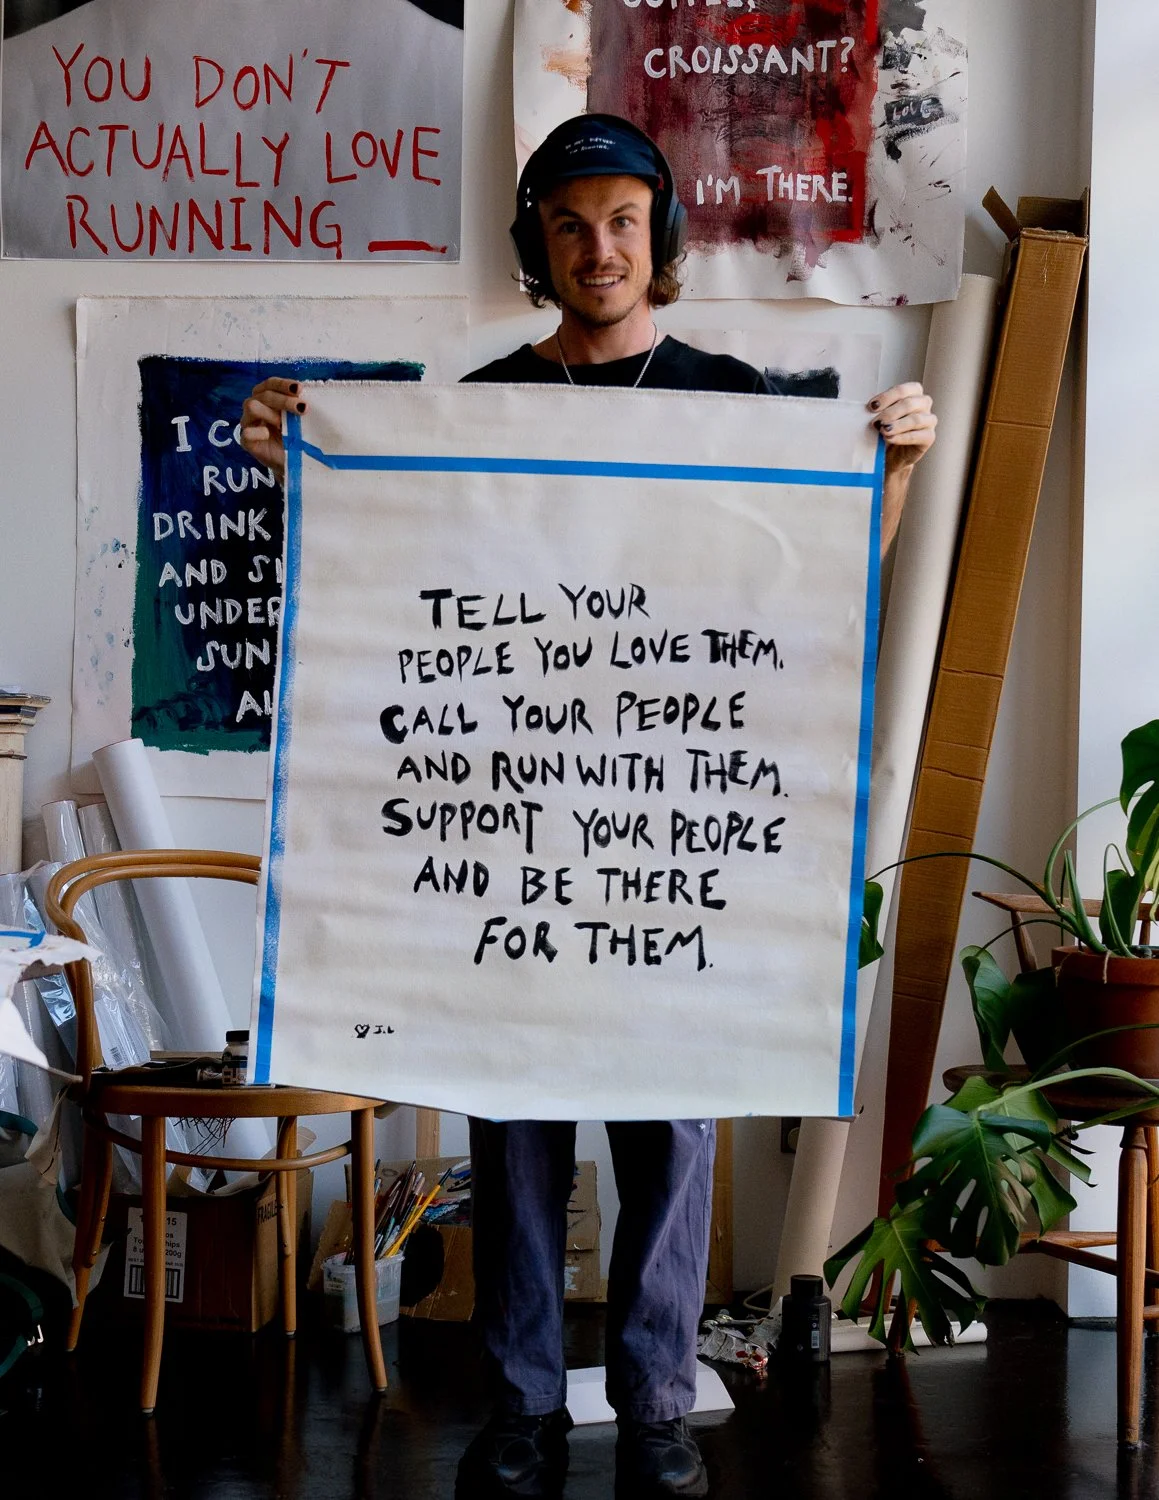 YOU DON'T
ACTUALLY LOVE
RUNNING
CROISSANT?
I'M THERE.
I
RUN
DRINK
AND
UNDER
SUN
TELL YOUR
PEOPLE YOU LOVE THEM.
CALL YOUR PEOPLE
AND RUN WITH THEM.
SUPPORT YOUR PEOPLE
AND BE THERE
FOR THEM.
J.L
FRAGILE